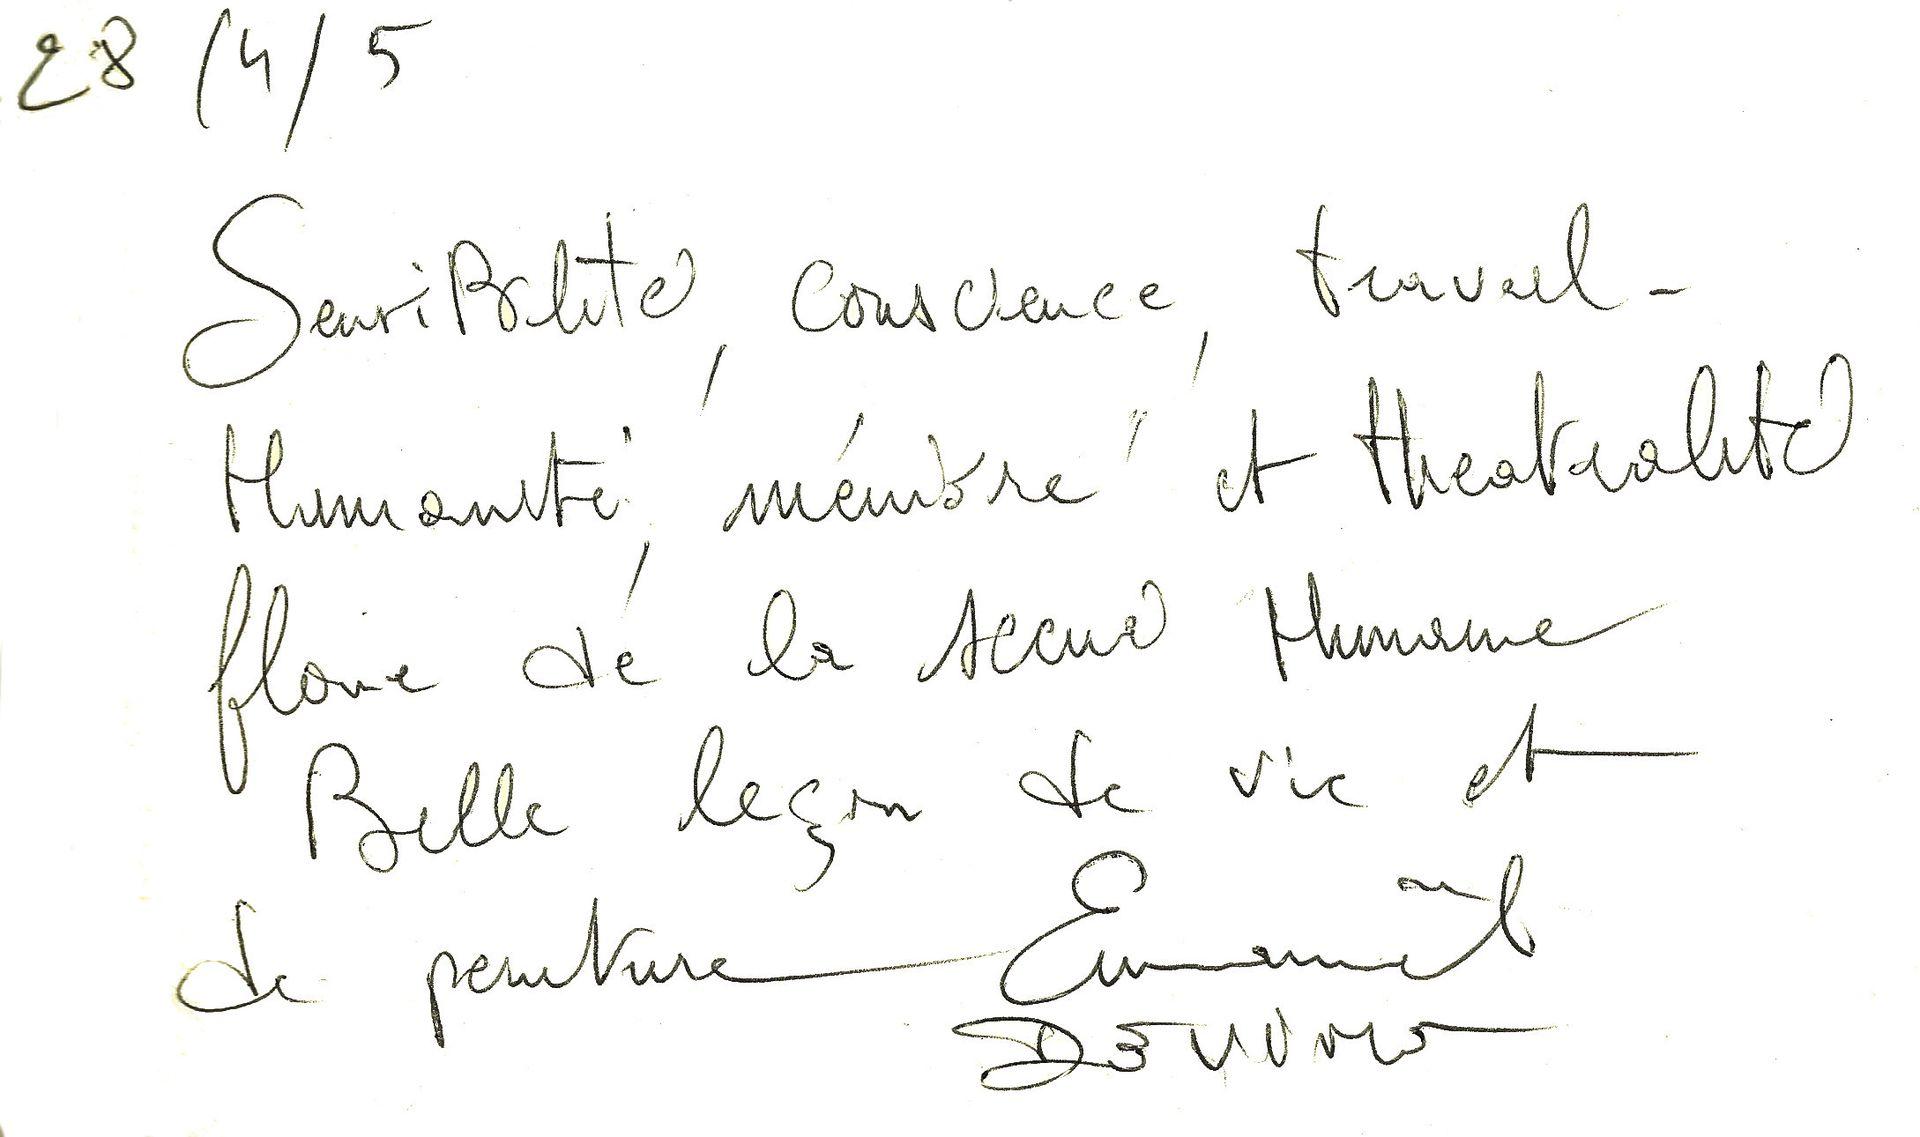 28/4/5
Sensibilité, conscience, travail -
Humanité, et théatralité
de la scène Humaine
Belle leçon de vie et
de peinture Emmanuel